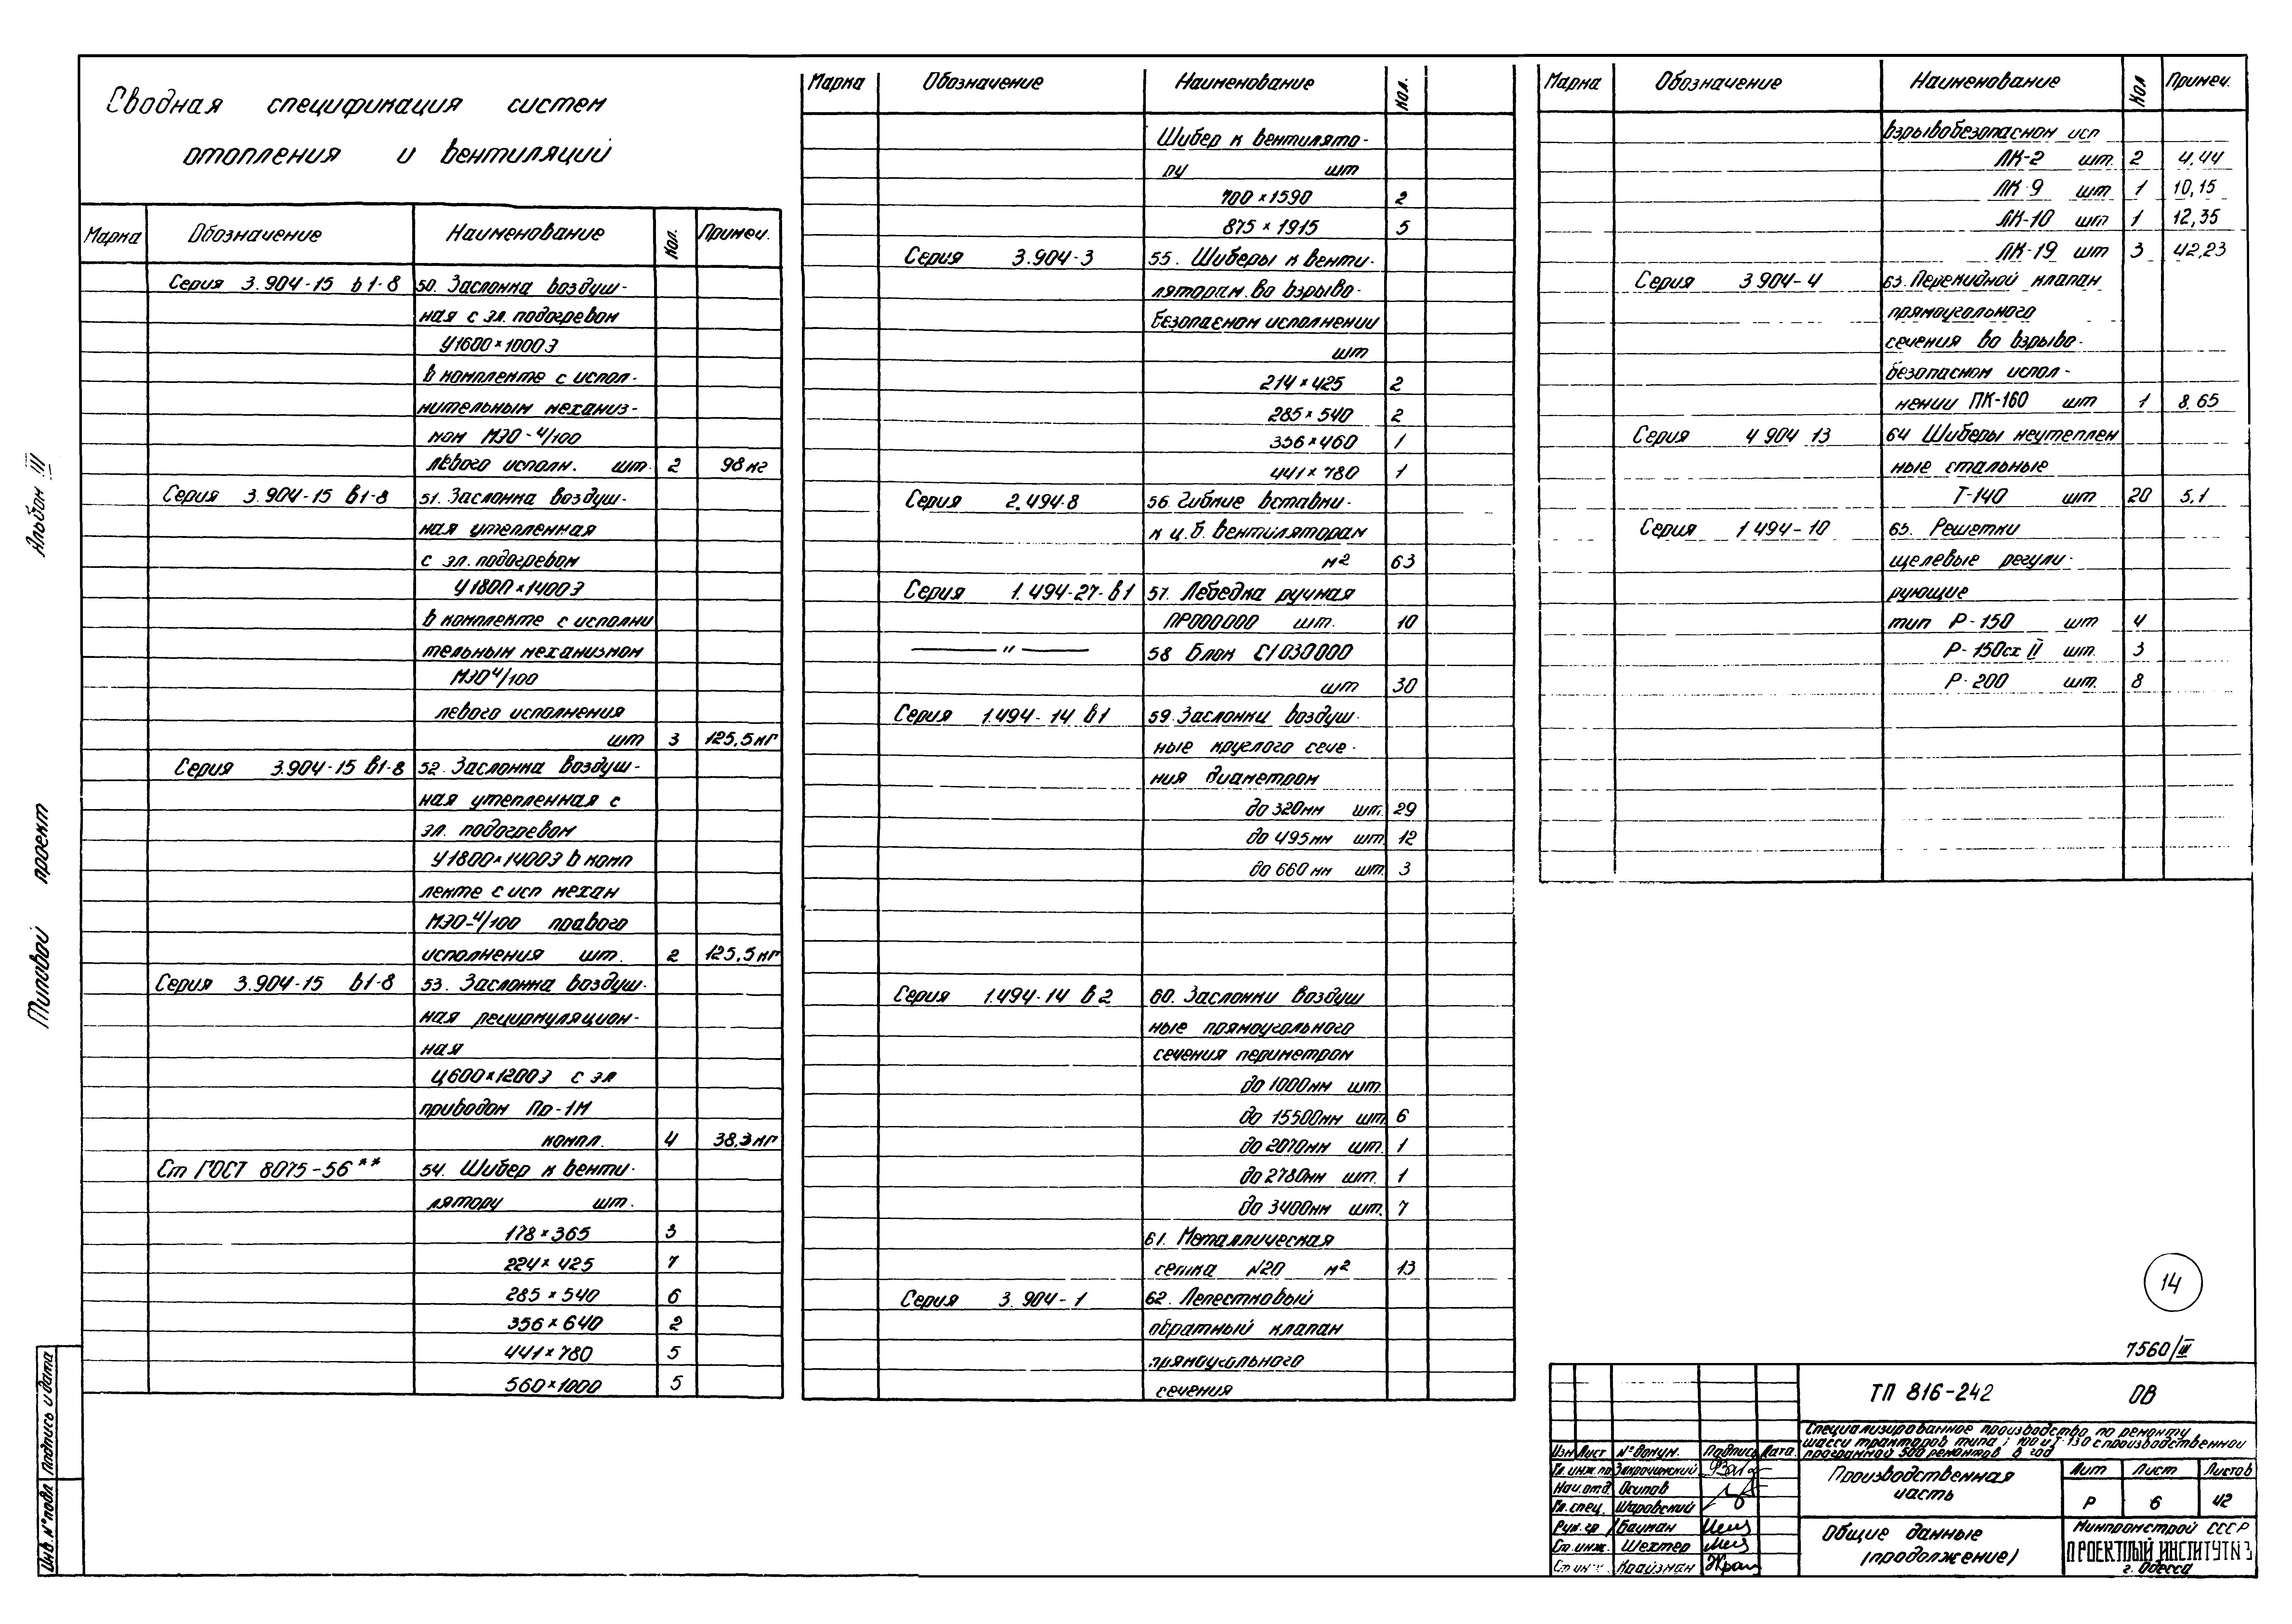 Сводная спецификация систем
отопления и вентиляций
Марка Обозначение Наименование Кол. Примеч.
Серия 3.904-15 в1-8 50. Заслонка воздуш-
ная с эл. подогревом
У1600×1000Э
в комплекте с испол-
нительным механиз-
мом МЭО-4/100
левого исполн. шт. 2 98 кг
Серия 3.904-15 в1-8 51. Заслонка воздуш-
ная утепленная
с эл. подогревом
У1800×1400Э
в комплекте с исполни
тельным механизмом
МЭО4/100
левого исполнения
шт 3 125,5 кг
Серия 3.904-15 в1-8 52. Заслонка воздуш-
ная утепленная с
эл. подогревом
У1800×1400Э в комп
лекте с исп механ
МЭО-4/100 правого
исполнения шт. 2 125,5 кг
Серия 3.904-15 в1-8 53. Заслонка воздуш-
ная рециркуляцион-
ная
Ц600×1200Э с эл
приводом Пр-1М
компл. 4 38,3 кг
Ст ГОСТ 8075-56** 54. Шибер к венти-
лятору шт.
178×365 3
224×425 7
285×540 6
356×640 2
441×780 5
560×1000 5
Марка Обозначение Наименование Кол.
Шибер к вентилято-
ру шт
700×1590 2
875×1915 5
Серия 3.904-3 55. Шиберы к венти-
ляторам во взрыво-
безопасном исполнении
шт
214×425 2
285×540 2
356×460 1
441×780 1
Серия 2.494-8 56. Гибкие вставки
к ц.б. вентиляторам
м2 63
Серия 1.494-27-в1 57. Лебедка ручная
ПР000.000 шт. 10
— " — 58 Блок С1030000
шт 30
Серия 1.494-14 в1 59. Заслонки воздуш-
ные круглого сече-
ния диаметром
до 320мм шт. 29
до 495мм шт 12
до 660 мм шт. 3
Серия 1.494-14 в2 60. Заслонки воздуш
ные прямоугольного
сечения периметром
до 1000мм шт.
до 15500мм шт 6
до 2070мм шт. 1
до 2780мм шт. 1
до 3400мм шт. 7
61. Металлическая
сетка N20 м2 13
Серия 3.904-1 62. Лепестковый
обратный клапан
прямоугольного
сечения
Марка Обозначение Наименование Кол Примеч.
взрывобезопасном исп
ЛК-2 шт. 2 4,44
ЛК-9 шт 1 10,15
ЛК-10 шт 1 12,35
ЛК-19 шт 3 42,23
Серия 3 904-4 63. Перекидной клапан
прямоугольного
сечения во взрыво-
безопасном испол-
нении ПК-160 шт 1 8,65
Серия 4 904 13 64 Шиберы неутеплен
ные стальные
Т-140 шт 20 5,1
Серия 1 494-10 65. Решетки
щелевые регули-
рующие
тип Р-150 шт 4
Р-150сх II шт. 3
Р-200 шт. 8
Альбом III
Типовой проект
Подпись и дата
Инв. №подл
14
7560/III
ТП 816-242 ОВ
Специализированное производство по ремонту
шасси тракторов типа Т 100 и Т-130 с производственной
программой 500 ремонтов в год
Изм Лист №докум. Подпись Дата.
Гл. инж. пр Закрочинский
Нач. отд Осипов
Гл. спец. Шаровский
Рук. гр Бауман
Ст. инж. Шехтер
Ст инж Крайзман
Производственная
часть
Лит Лист Листов
Р 6 42
Общие данные
(продолжение)
Минпромстрой СССР
ПРОЕКТНЫЙ ИНСТИТУТ№3
г. Одесса